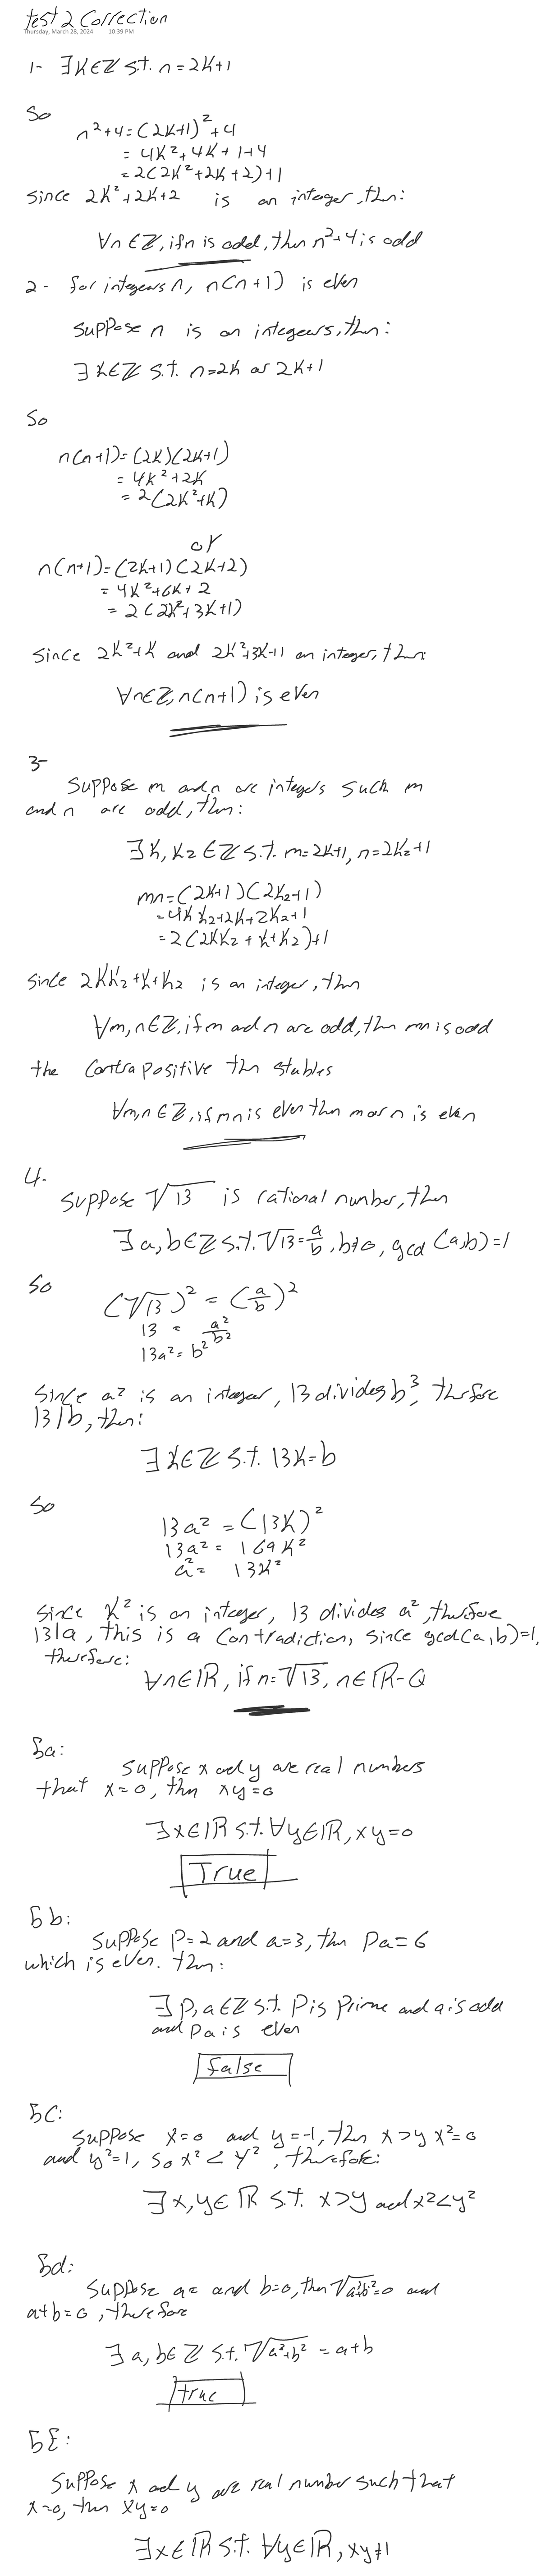 Test 2 Correction
Thursday, March 28, 2024 10:39 PM
1- ∃K∈ℤ s.t. n=2K+1
So
n²+4=(2K+1)²+4
= 4K²+4K+1+4
= 2(2K²+2K+2)+1
Since 2K²+2K+2 is an integer, then:
∀n∈ℤ, if n is odd, then n²+4 is odd
2- for integers n, n(n+1) is even
Suppose n is an integers, then:
∃K∈ℤ s.t. n=2K or 2K+1
So
n(n+1)=(2K)(2K+1)
= 4K²+2K
= 2(2K²+K)
or
n(n+1)=(2K+1)(2K+2)
= 4K²+6K+2
= 2(2K²+3K+1)
Since 2K²+K and 2K²+3K+1 an integer, then:
∀n∈ℤ, n(n+1) is even
3-
Suppose m and n are integers such m
and n are odd, then:
∃K, K₂∈ℤ s.t. m=2K+1, n=2K₂+1
mn=(2K+1)(2K₂+1)
=4KK₂+2K+2K₂+1
=2(2KK₂+K+K₂)+1
Since 2KK₂+K+K₂ is an integer, then
∀m,n∈ℤ, if m and n are odd, then mn is odd
the contrapositive then stables
∀m,n∈ℤ, if mn is even then m or n is even
4.
Suppose √13 is rational number, then
∃a,b∈ℤ s.t. √13=a/b, b≠0, gcd(a,b)=1
So
(√13)² = (a/b)²
13 = a²/b²
13a²=b²
Since a² is an integer, 13 divides b³, therfore
13|b, then:
∃K∈ℤ s.t. 13K=b
So
13a² = (13K)²
13a² = 169K²
a² = 13K²
Since K² is an integer, 13 divides a², therfore
13|a, this is a contradiction, since gcd(a,b)=1,
therefore:
∀n∈ℝ, if n=√13, n∈ℝ-Q
5a:
Suppose x and y are real numbers
that x=0, then xy=0
∃x∈ℝ s.t. ∀y∈ℝ, xy=0
True
5b:
Suppose P=2 and a=3, then Pa=6
which is even. then:
∃p,a∈ℤ s.t. P is Prime and a is odd
and pa is even
false
5C:
Suppose x=0 and y=-1, then x>y x²=0
and y²=1, so x²<y², therefore:
∃x,y∈ℝ s.t. x>y and x²<y²
5d:
Suppose a= and b=0, then √a²+b²=0 and
a+b=0, therefore
∃a,b∈ℤ s.t. √a²+b² = a+b
true
5E:
Suppose x and y are real number such that
x=0, then xy=0
∃x∈ℝ s.t. ∀y∈ℝ, xy≠1